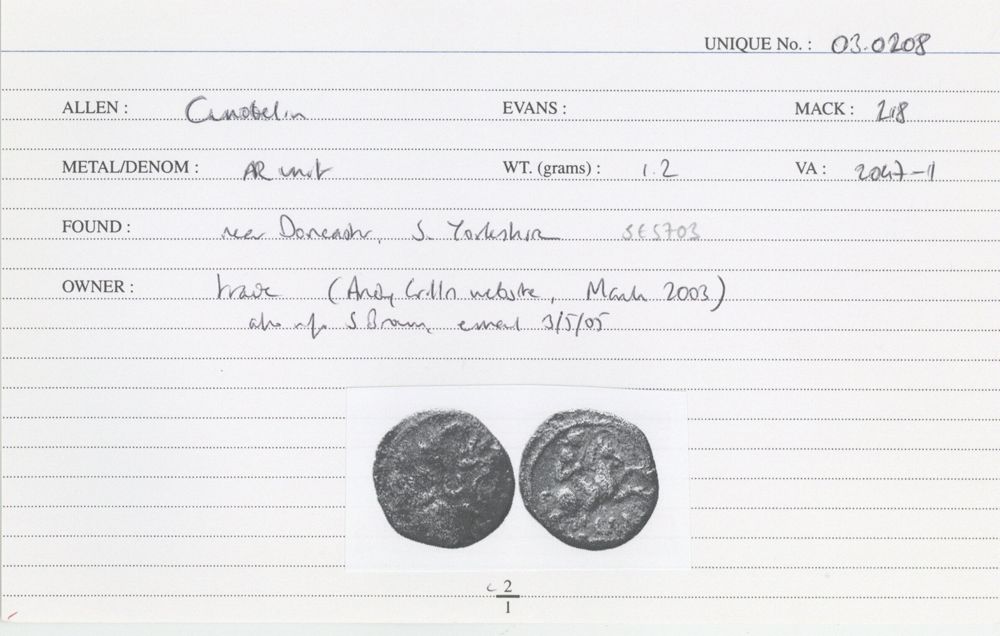 UNIQUE No. : 03.0208
ALLEN : Cunobelin EVANS : MACK : 218
METAL/DENOM : AR unit WT. (grams) : 1.2 VA : 2047-1
FOUND : near Doncaster, S. Yorkshire SE5703
OWNER : trade (Andy Gillis website, March 2003)
also info S Brown, email 3/5/05
c 2
1